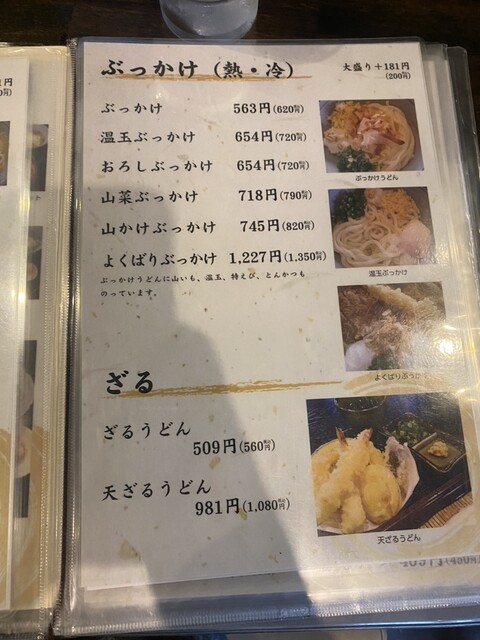 ぶっかけ（熱・冷）
大盛り＋181円
(200税込)
ぶっかけ 563円(620税込)
温玉ぶっかけ 654円(720税込)
おろしぶっかけ 654円(720税込)
山菜ぶっかけ 718円(790税込)
山かけぶっかけ 745円(820税込)
よくばりぶっかけ 1,227円(1,350税込)
ぶっかけうどんに山いも、温玉、特えび、とんかつも
のっています。
ぶっかけうどん
温玉ぶっかけ
よくばりぶっかけ
ざる
ざるうどん
509円(560税込)
天ざるうどん
981円(1,080税込)
天ざるうどん
円